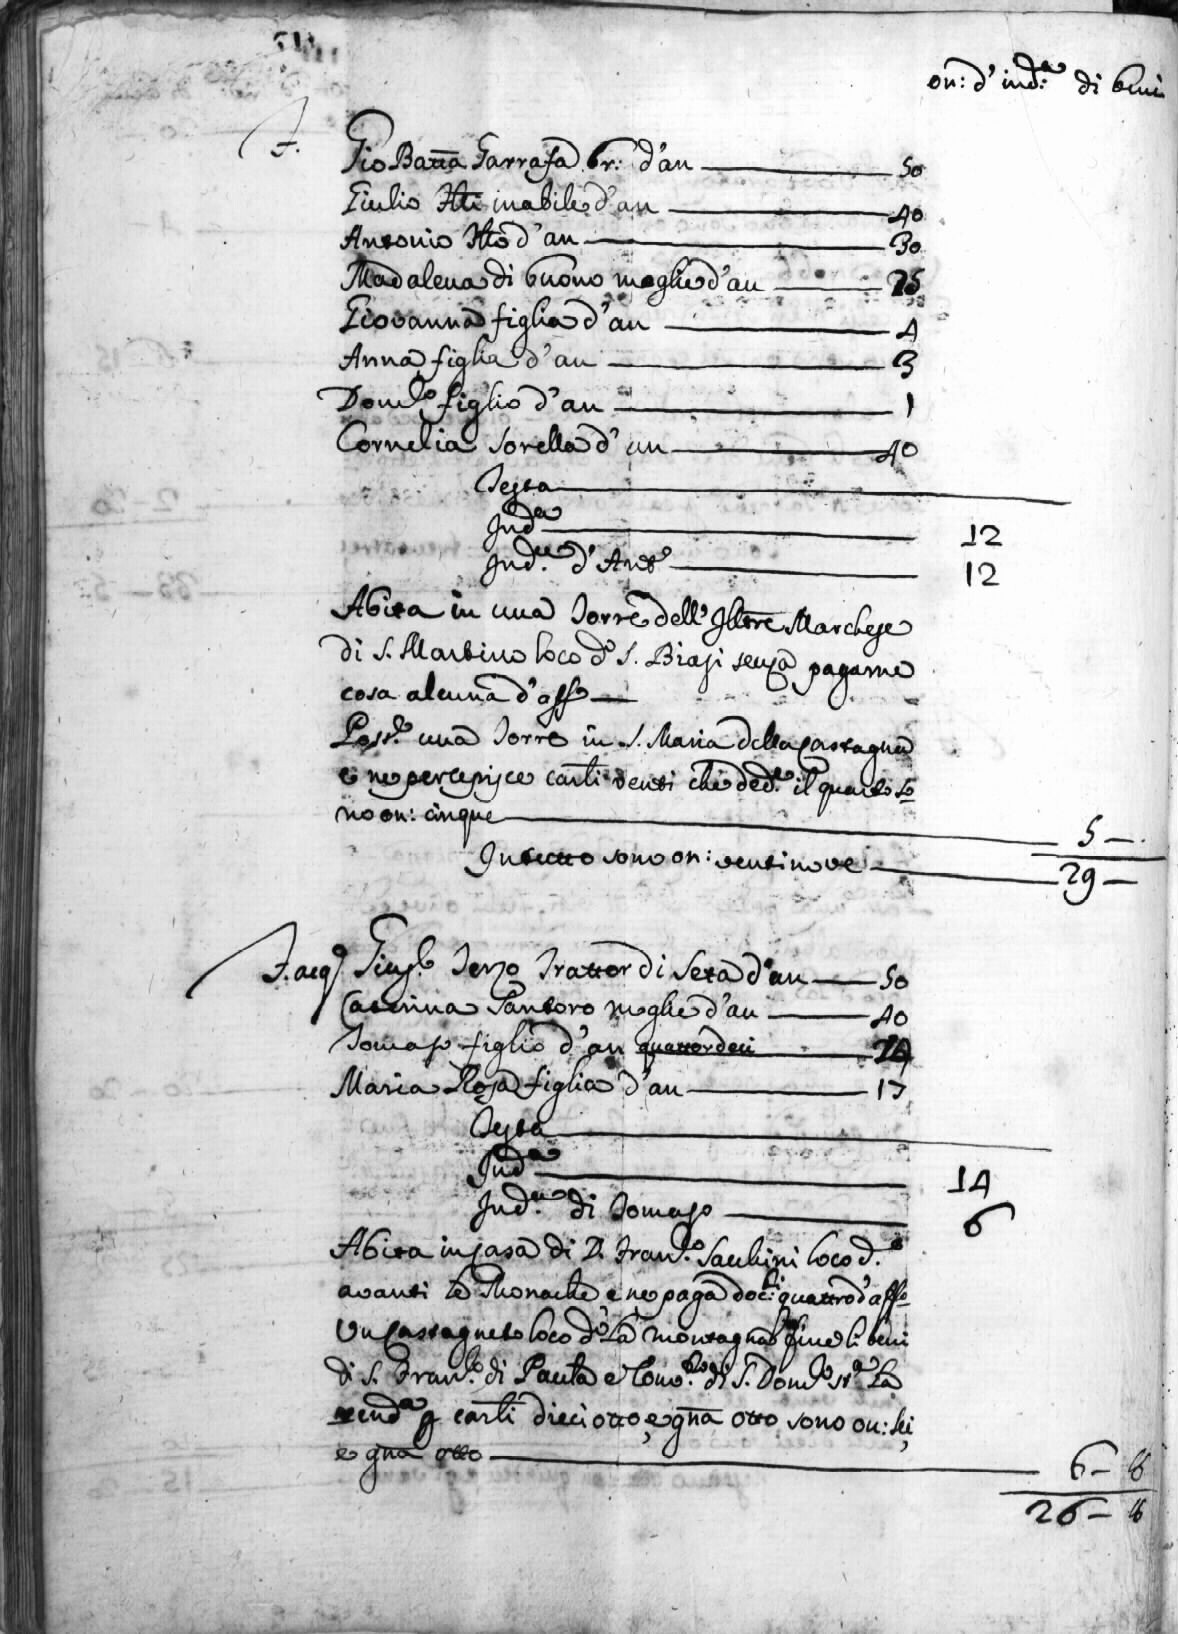 on: d' ind:ª di beni
F. Gio Batta Garrafa br: d'an 50
Giulio inabile d'an 40
Antonio d'an 30
Madalena di buono moglie d'an 25
Giovanna figlia d'an 4
Anna figlia d'an 3
Dom:co figlio d'an 1
Cornelia sorella d'an 40
Testa
Indª 12
Ind. d'Ant° 12
Abita in una Torre dell' Illtre Marchese
di S. Martino loco d° S. Biasi senza pagarne
cosa alcuna d'affo
Poss:e una Torre in S. Maria della Castagna
e ne percepisce carli venti che ded:e il quarto so
no on: cinque 5 —
In tutto sono on: ventinove 29 —
F. acq Gius:e Terzo Trattor di Seta d'an 50
Caterina Santoro moglie d'an 40
Tomaso figlio d'an quattordeci 14
Maria Rosa figlia d'an 17
Testa
Indª 14
Ind. di Tomaso 6
Abita in casa di D. Fran:co Sacchini loco d.°
avanti le Monache e ne paga doc:ti quattro d'affo
Un Castagneto loco d° La montagna fine li beni
di S. Fran:co di Paula e Conv:to di S. Dom:co La
rendª p carli dieciotto, e gna otto sono on: sei,
e gna otto 6 — 8
26 — 8